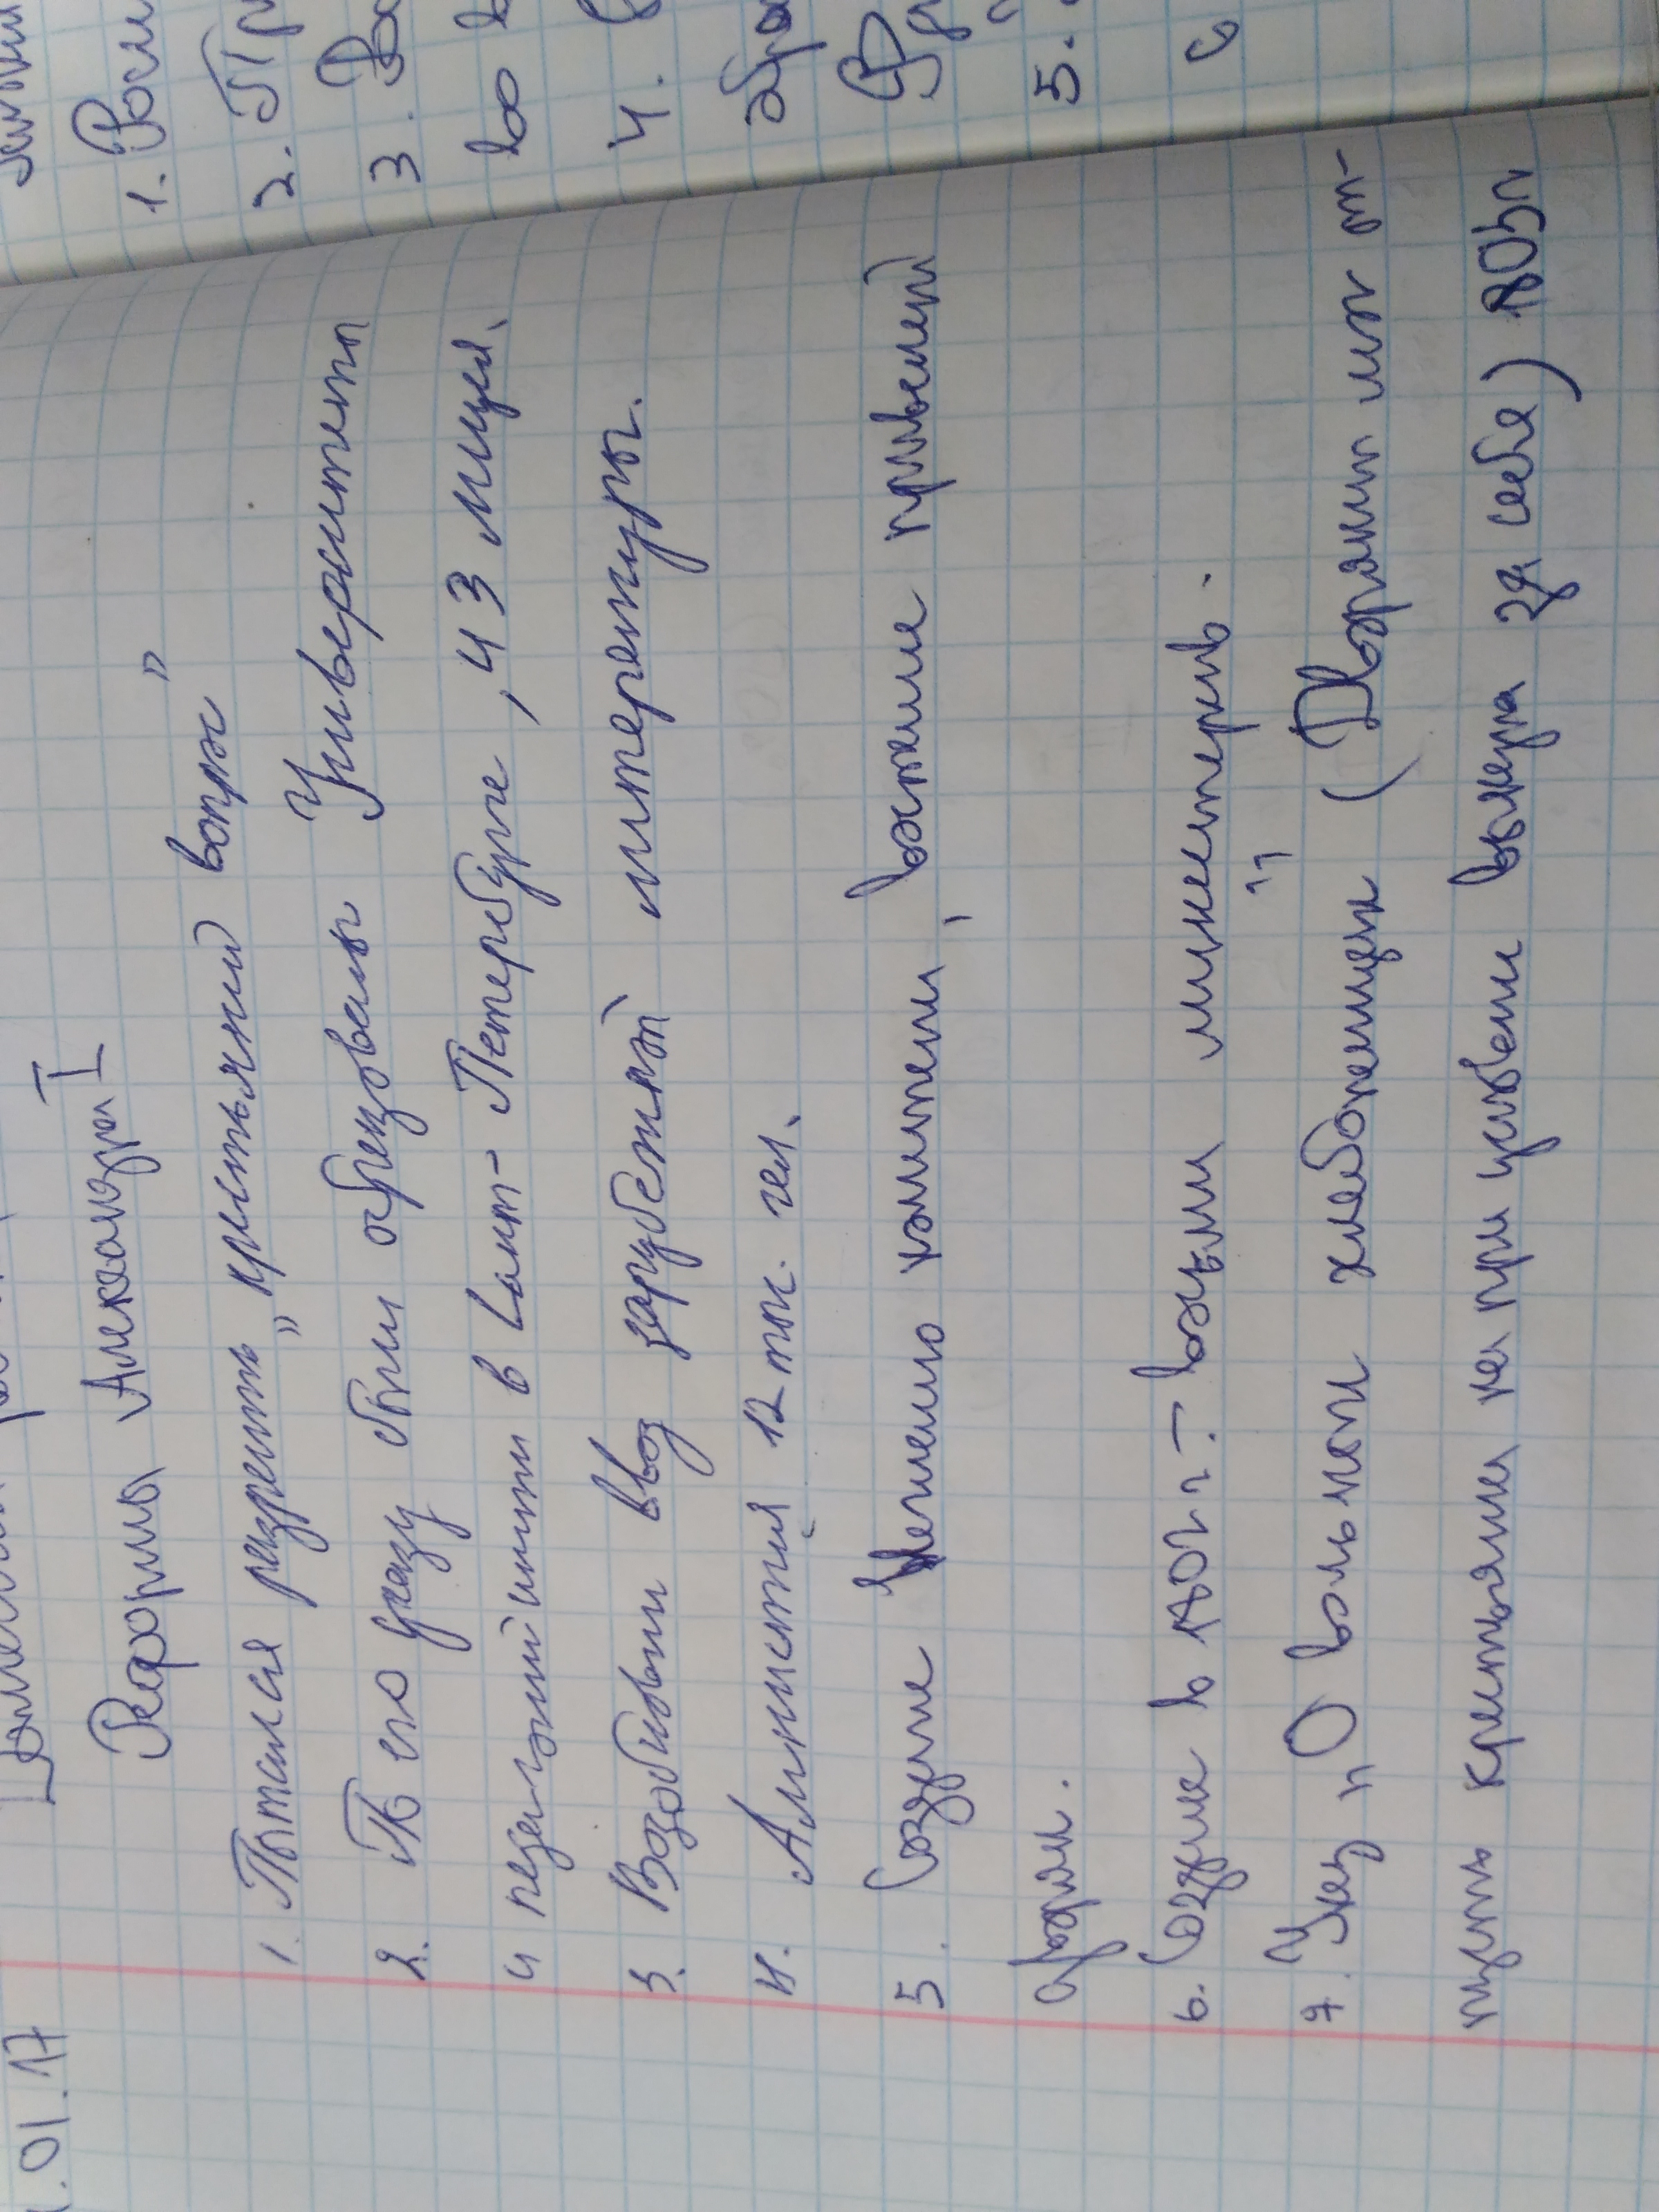 .01.17
Реформы Александра I
1. Пытался разрешить „крестьянский вопрос"
2. По его указу были образованы Университеты
и педагогический инст в Санкт-Петербурге, и 3 лицея.
3. Возобновили ввоз зарубежной литературы.
4. Амнистия 12 тыс. чел.
5. Создание Негласного комитета, важные
реформ.
6. Создание в 1802г.- восьми министерств.
7. Указ "О вольных хлебопашцах" (Дворянин мог от-
пустить крестьянина на при условии выкупа за себя) 1803г
1. Росси
2. Пр
3. Во
во в
4.
обра
5.